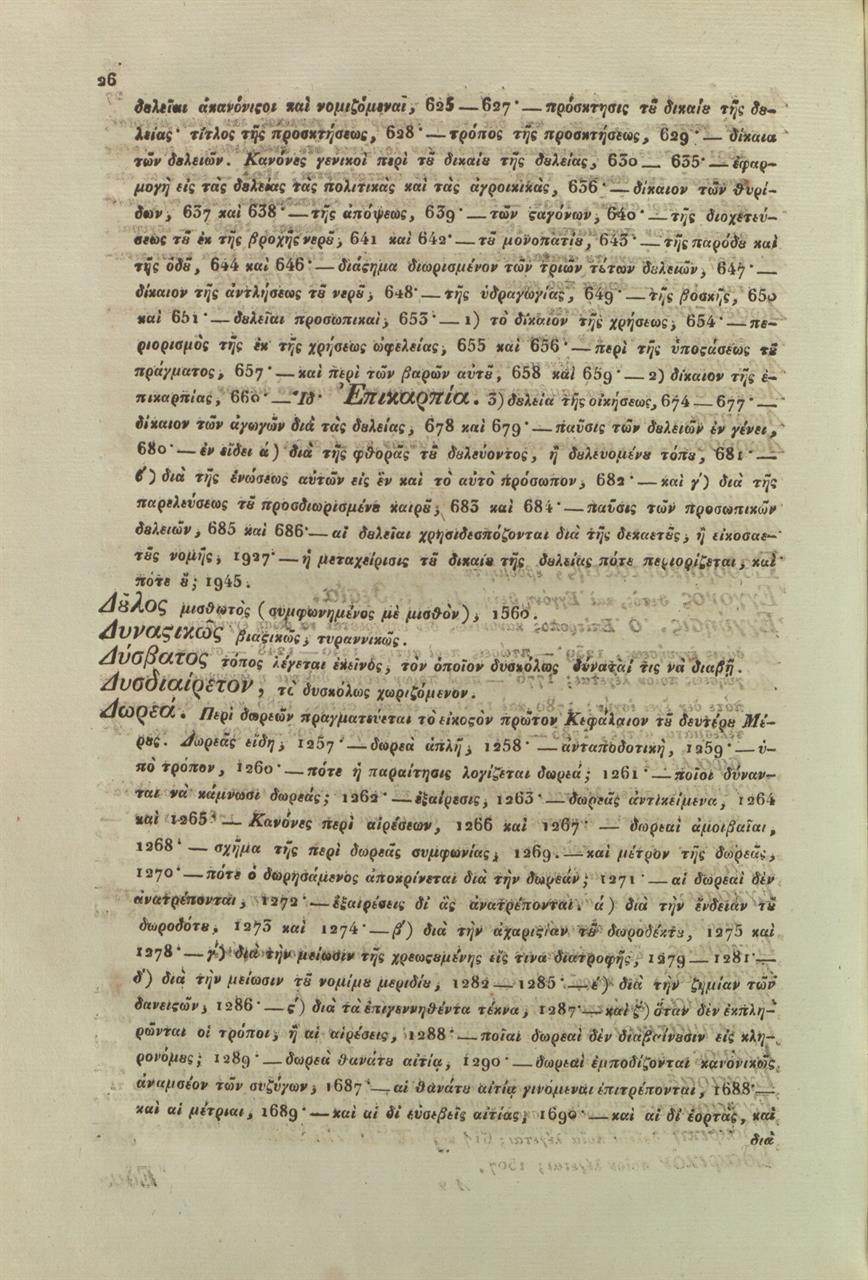 26
δȣλεῖαι ἀκανόνιϛοι καὶ νομιζόμεναι, 625 — 627· — πρόσκτησις τȣ͂ δικαίȣ τῆς δȣ-
λείας· τίτλος τῆς προσκτήσεως, 628· — τρόπος τῆς προσκτήσεως, 629· — δίκαια
τῶν δȣλειῶν. Κανόνες γενικοὶ περὶ τȣ͂ δικαίȣ τῆς δȣλείας, 630 — 635· — ἐφαρ-
μογὴ εἰς τὰς δȣλείας τὰς πολιτικὰς καὶ τὰς ἀγροικικὰς, 636· — δίκαιον τῶν θυρί-
δων, 637 καὶ 638· — τῆς ἀπόψεως, 639· — τῶν ϛαγόνων, 640· — τῆς διοχετεύ-
σεως τȣ͂ ἐκ τῆς βροχῆς νερȣ͂, 641 καὶ 642· — τȣ͂ μονοπατίȣ, 643· — τῆς παρόδȣ καὶ
τῆς ὁδȣ͂, 644 καὶ 646· — διάϛημα διωρισμένον τῶν τριῶν τȣ́των δȣλειῶν, 647· —
δίκαιον τῆς ἀντλήσεως τȣ͂ νερȣ͂, 648· — τῆς ὑδραγωγίας, 649· — τῆς βοσκῆς, 650
καὶ 651· — δȣλεῖαι προσωπικαὶ, 653· — 1) τὸ δίκαιον τῆς χρήσεως, 654· — πε-
ριορισμὸς τῆς ἐκ τῆς χρήσεως ὠφελείας, 655 καὶ 656· — περὶ τῆς ὑποϛάσεως τȣ͂
πράγματος, 657· — καὶ περὶ τῶν βαρῶν αὐτȣ͂, 658 καὶ 659· — 2) δίκαιον τῆς ἐ-
πικαρπίας, 660· — Ἰδ· Ἐπικαρπία. 3) δȣλεία τῆς οἰκήσεως, 674 — 677· —
δίκαιον τῶν ἀγωγῶν διὰ τὰς δȣλείας, 678 καὶ 679· — παῦσις τῶν δȣλειῶν ἐν γένει,
680· — ἐν εἴδει ά) διὰ τῆς φθορᾶς τȣ͂ δȣλεύοντος, ἢ δȣλευομένȣ τόπȣ, 681· —
β́) διὰ τῆς ἑνώσεως αὐτῶν εἰς ἓν καὶ τὸ αὐτὸ πρόσωπον, 682· — καὶ γ́) διὰ τῆς
παρελεύσεως τȣ͂ προσδιωρισμένȣ καιρȣ͂, 683 καὶ 684· — παῦσις τῶν προσωπικῶν
δȣλειῶν, 685 καὶ 686· — αἱ δȣλεῖαι χρησιδεσπόζονται διὰ τῆς δεκαετȣ͂ς, ἢ εἰκοσαε-
τȣ͂ς νομῆς, 1927· — ἡ μεταχείρισις τȣ͂ δικαίȣ τῆς δȣλείας πότε περιορίζεται, καὶ
πότε ȣ̓̀; 1945.
Δȣ͂λος μισθωτὸς (συμφωνημένος μὲ μισθὸν), 1560.
Δυναϛικῶς βιαϛικῶς, τυραννικῶς.
Δύσβατος τόπος λέγεται ἐκεῖνὸς, τὸν ὁποῖον δυσκόλως δύναταί τις νὰ διαβῇ.
Δυσδιαίρετον, τὸ δυσκόλως χωριζόμενον.
Δωρεά. Περὶ δωρεῶν πραγματεύεται τὸ εἰκοϛὸν πρῶτον Κεφάλαιον τȣ͂ δευτέρȣ Μέ-
ρȣς. Δωρεᾶς εἴδη, 1257· — δωρεὰ ἁπλῆ, 1258· — ἀνταποδοτικὴ, 1259· — ὑ-
πὸ τρόπον, 1260· — πότε ἡ παραίτησις λογίζεται δωρεά; 1261· — ποῖοι δύναν-
ται νὰ κάμνωσι δωρεάς; 1262· — ἐξαίρεσις, 1263· — δωρεᾶς ἀντικείμενα, 1264
καὶ 1265· — Κανόνες περὶ αἱρέσεων, 1266 καὶ 1267· — δωρεαὶ ἀμοιβαῖαι,
1268· — σχῆμα τῆς περὶ δωρεᾶς συμφωνίας, 1269. — καὶ μέτρον τῆς δωρεᾶς,
1270· — πότε ὁ δωρησάμενος ἀποκρίνεται διὰ τὴν δωρεάν; 1271· — αἱ δωρεαὶ δὲν
ἀνατρέπονται, 1272· — ἐξαιρέσεις δἰ ἃς ἀνατρέπονται. ά) διὰ τὴν ἔνδειαν τȣ͂
δωροδότȣ, 1273 καὶ 1274· — β́) διὰ τὴν ἀχαριϛίαν τȣ͂ δωροδέκτȣ, 1275 καὶ
1278· — γ́) διὰ τὴν μείωσιν τῆς χρεωϛȣμένης εἴς τινα διατροφῆς, 1279 — 1281· —
δ́) διὰ τὴν μείωσιν τȣ͂ νομίμȣ μεριδίȣ, 1282 — 1285· — έ) διὰ τὴν ζημίαν τῶν
δανειϛῶν, 1286· — ϛ́) διὰ τὰ ἐπιγεννηθέντα τέκνα, 1287· — καὶ ζ́) ὅταν δὲν ἐκπλη-
ρῶνται οἱ τρόποι, ἢ αἱ αἱρέσεις, 1288· — ποῖαι δωρεαὶ δὲν διαβαίνȣσιν εἰς κλη-
ρονόμȣς; 1289· — δωρεὰ θανάτȣ αἰτίᾳ, 1290· — δωρεαὶ ἐμποδίζονται κανονικῶς
ἀναμεσέον τῶν συζύγων, 1687· — αἱ θανάτȣ αἰτίᾳ γινόμεναι ἐπιτρέπονται, 1688· —
καὶ αἱ μέτριαι, 1689· — καὶ αἱ δἰ εὐσεβεῖς αἰτίας, 1690· — καὶ αἱ δἰ ἑορτὰς, καὶ
διὰ